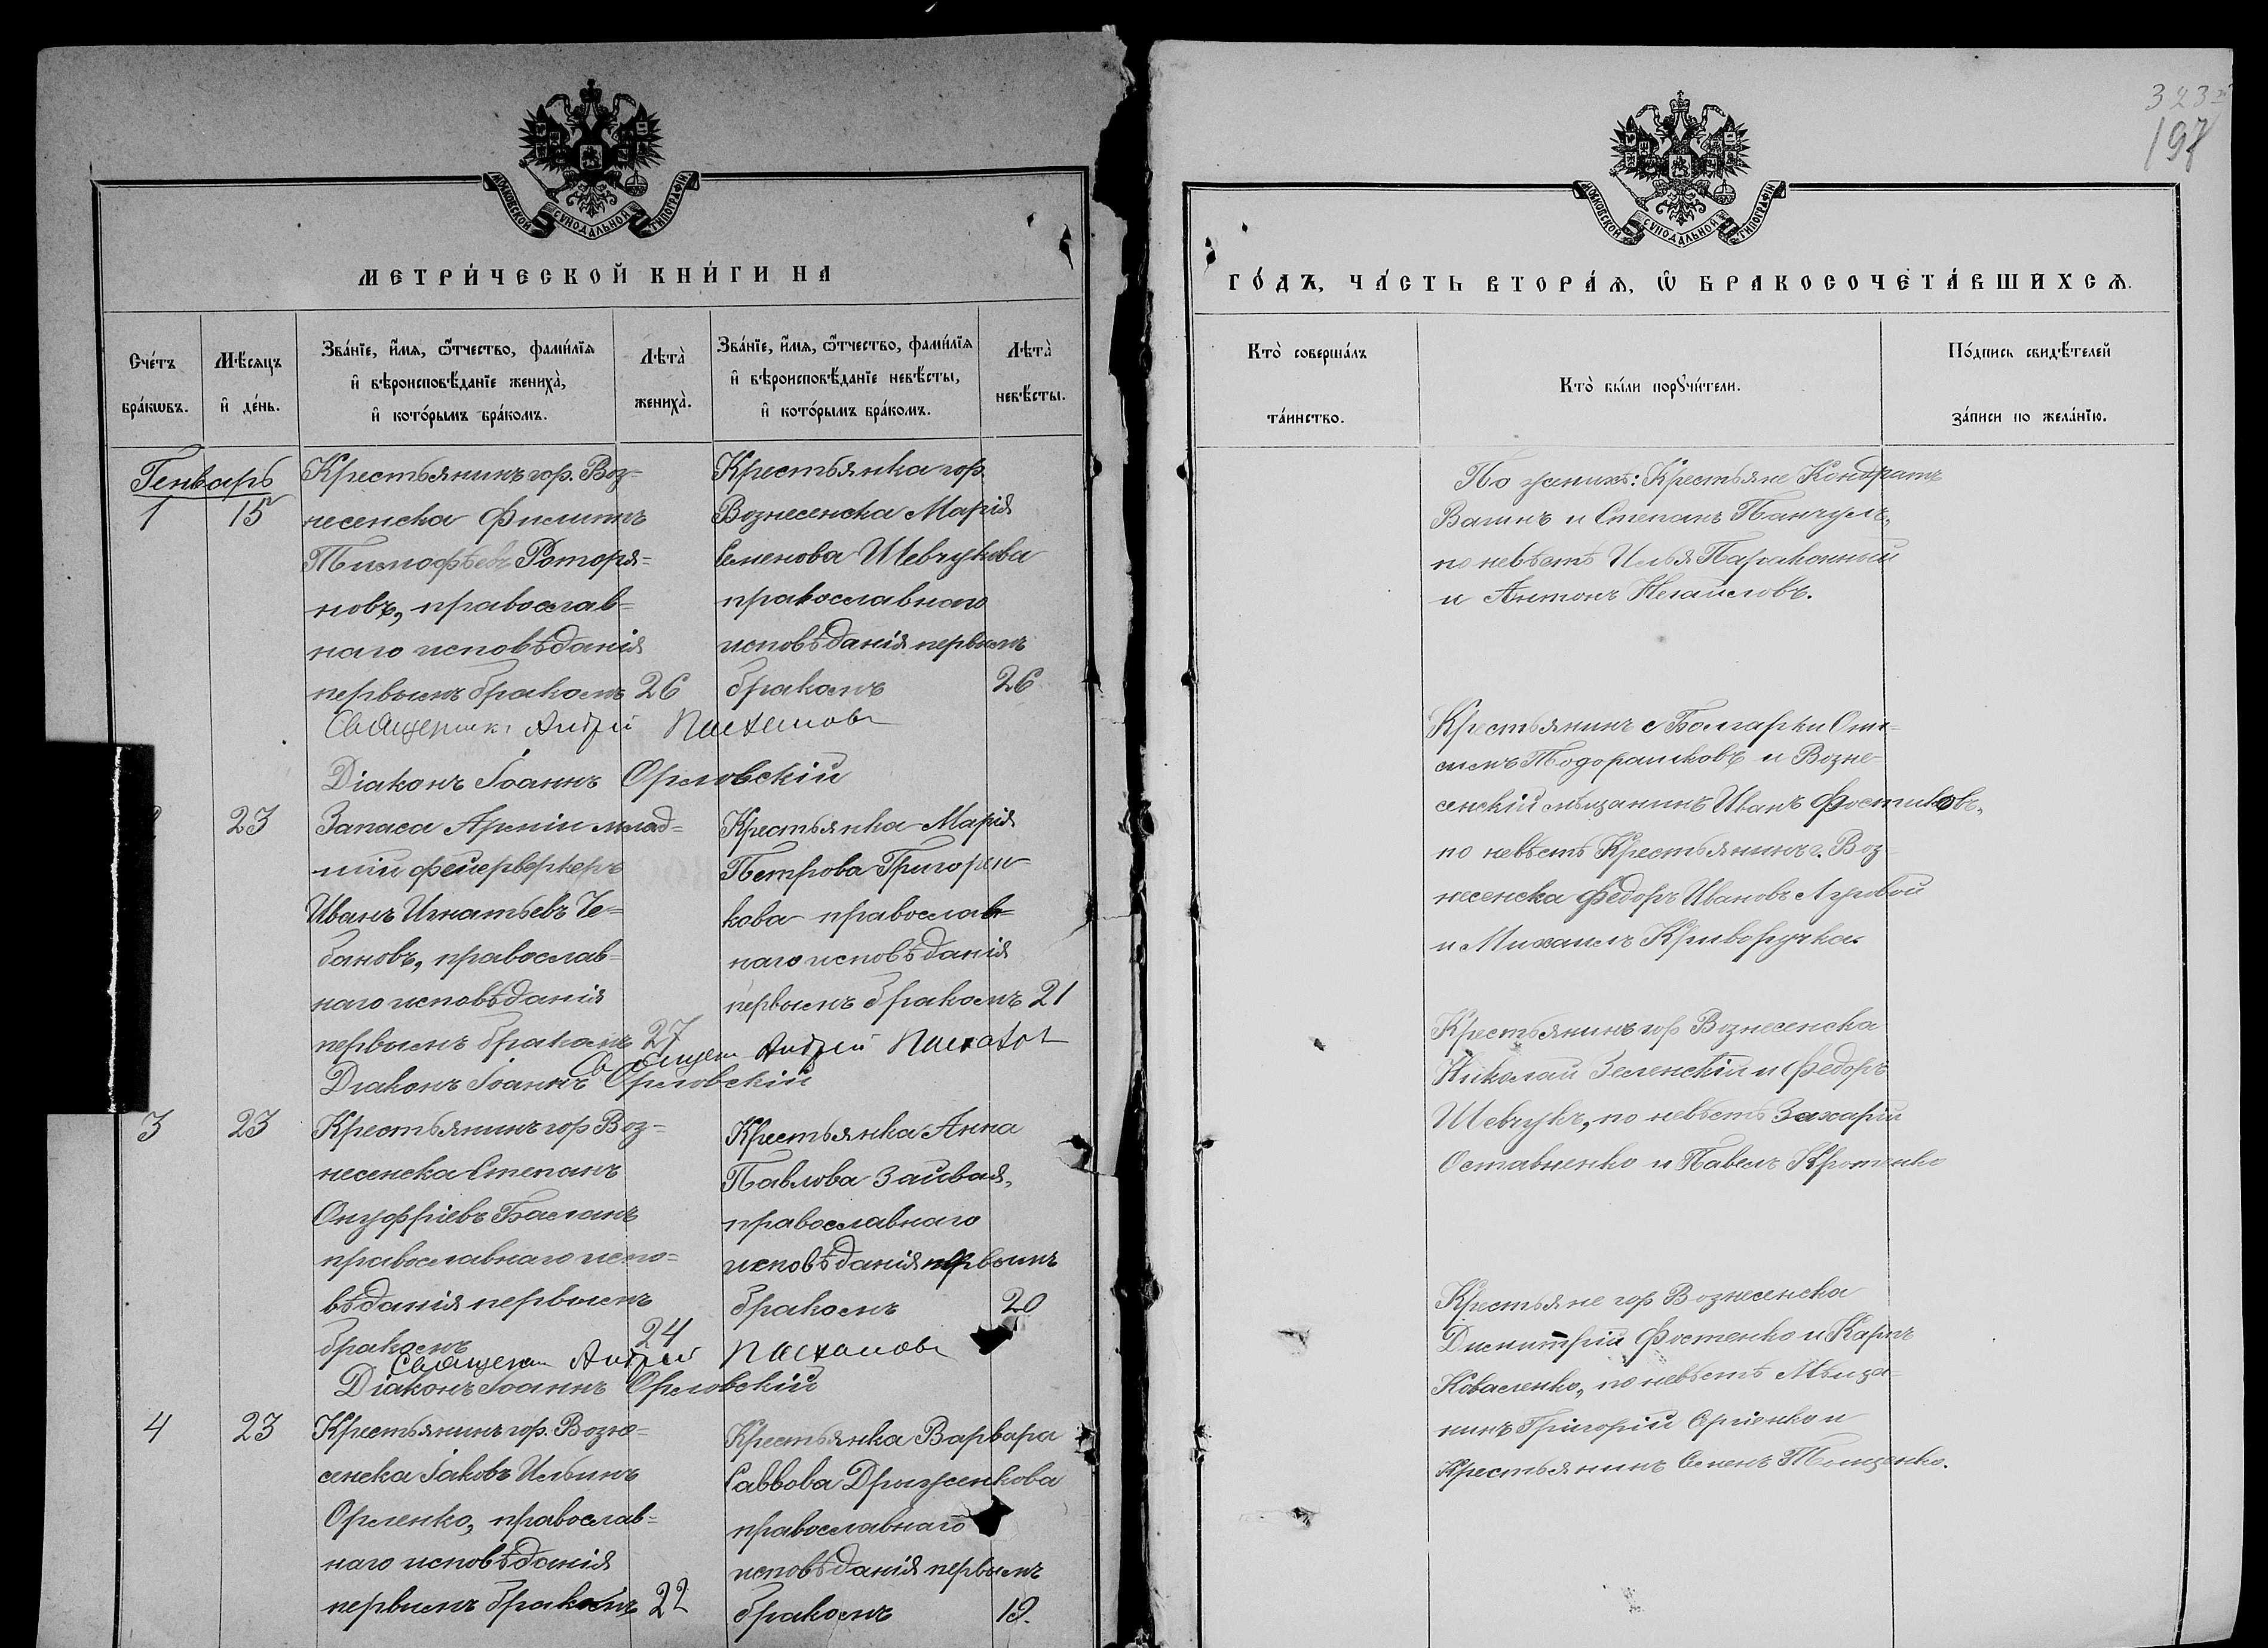 МОСКОВСКОЙ СѴНОДАЛЬНОЙ ТИПОГРАФІИ
МЕТРИ́ЧЕСКОЙ КНИ́ГИ НА
Сче́тъ бра́кѡвъ.
Мѣ́сяцъ и҆ де́нь.
Зва́нїе, и҆́мѧ, ѻ҆́тчество, фамѝлїѧ
и҆ вѣроисповѣ́данїе жениха̀,
и҆ кото́рымъ бра́комъ.
Лѣта̀ жениха̀.
Зва́нїе, и҆́мѧ, ѻ҆́тчество, фами́лїѧ
и҆ вѣроисповѣ́данїе невѣ́сты,
и҆ кото́рымъ бра́комъ.
Лѣта̀ невѣ́сты.
Генварь
1 15
Крестьянинъ гор. Воз=
несенска Филиппъ
Тимофѣевъ Ротаря=
новъ, православ=
наго исповѣданія
первымъ бракомъ 26
Крестьянка гор.
Вознесенска Марія
Семенова Шевчукова
православнаго
исповѣданія первымъ
бракомъ 26
Священникъ Андрей
Діаконъ Іоаннъ Орловскій
23
Запаса Арміи млад=
шій фейерверкеръ
Иванъ Игнатьевъ Че=
бановъ, православ=
наго исповѣданія
первымъ бракомъ 27
Крестьянка Марія
Петрова Григорен
кова православ=
наго исповѣданія
первымъ бракомъ 21
Священ Андрей
Діаконъ Іоаннъ Орловскій
3 23
Крестьянинъ гор Воз=
несенска Степанъ
Онуфріевъ Басланъ
православнаго испо=
вѣданія первымъ
бракомъ 24
Крестьянка Анна
Павлова Заивая,
православнаго
исповѣданія первымъ
бракомъ 20
Священ Андрей
Діаконъ Іоаннъ Орловскій
4 23
Крестьянинъ гор. Возне=
сенска Іаковъ Ильинъ
Орленко, православ=
наго исповѣданія
первымъ бракомъ 22
Крестьянка Варвара
Саввова Дрыженкова
православнаго
исповѣданія первымъ
бракомъ 19.
323
197
МОСКОВСКОЙ СѴНОДАЛЬНОЙ ТИПОГРАФІИ
ГО́ДЪ, ЧА́СТЬ ВТОРА́Ѧ, Ѡ҆ БРАКОСОЧЕТА́ВШИХСѦ.
Кто̀ соверша́лъ
та́инство.
Кто̀ бы́ли порꙋчи́тели.
По́дпись свидѣ́телей
за́писи по жела́нїю.
По женихѣ: Крестьяне Кондратъ
Вагинъ и Степанъ Панчулъ,
по невѣстѣ Илья
и Антонъ Негаиловъ.
Крестьянинъ с Болгарки Они=
симъ Тодорашковъ и Возне=
сенскій мѣщанинъ Иванъ Фостиковъ,
по невѣстѣ Крестьянинъ г. Воз
несенска Федоръ Ивановъ Луговой
и Михаилъ Криворучка.
Крестьянинъ гор Вознесенска
Николай Зеленскій и Федоръ
Шевчукъ, по невѣстѣ Захарій
Оставненко и Павелъ Кротенко
Крестьяне гор Вознесенска
Димитрій Фостенко и Карпъ
Коваленко, по невѣстѣ Мѣща=
нинъ Григорій Сергіенко и
Крестьянинъ Семенъ Тощенко.